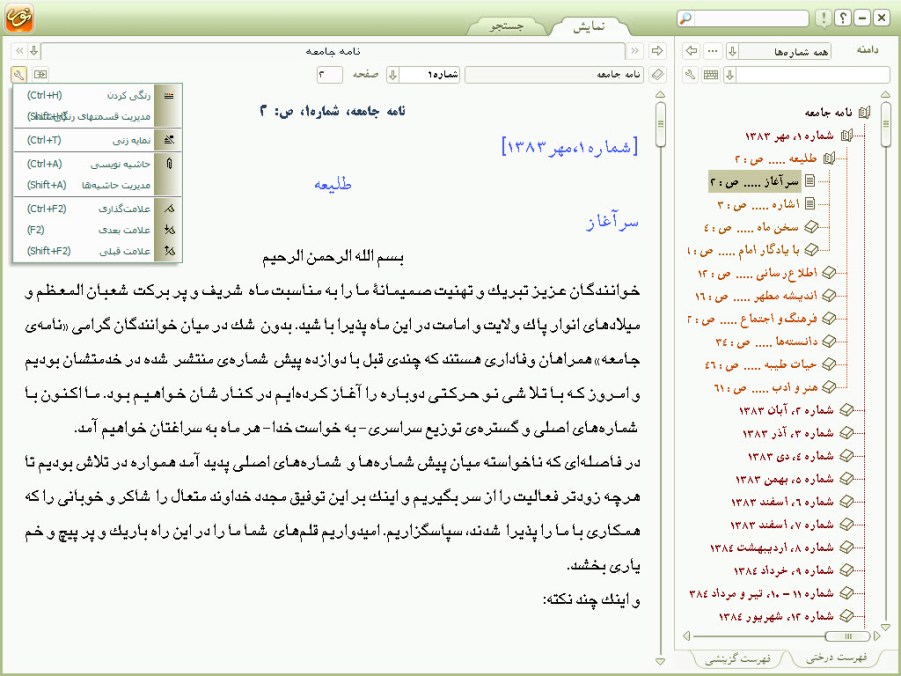 نور
نمایش
جستجو
دامنه
همه شماره‌ها
نامه جامعه
شماره ۱، مهر ۱۳۸۳
طلیعه ..... ص : ۲
سرآغاز ..... ص : ۲
اشاره ..... ص : ۳
سخن ماه ..... ص : ٤
با یادگار امام ..... ص : ۸
اطلاع‌رسانی ..... ص : ۱۲
اندیشه مطهر ..... ص : ۱٦
فرهنگ و اجتماع ..... ص : ۲
دانسته‌ها ..... ص : ۳٤
حیات طیبه ..... ص : ٤٦
هنر و ادب ..... ص : ٦۱
شماره ۲، آبان ۱۳۸۳
شماره ۳، آذر ۱۳۸۳
شماره ٤، دی ۱۳۸۳
شماره ۵، بهمن ۱۳۸۳
شماره ٦، اسفند ۱۳۸۳
شماره ۷، اسفند ۱۳۸۳
شماره ۸، اردیبهشت ۱۳۸٤
شماره ۹، خرداد ۱۳۸٤
شماره ۱۱ - ۱۰، تیر و مرداد ۳۸٤
شماره ۱۲، شهریور ۱۳۸٤
فهرست درختی
فهرست گزینشی
نامه جامعه
نامه جامعه
شماره۱
صفحه
۲
رنگی کردن (Ctrl+H)
مدیریت قسمتهای رنگی شده (Shift+H)
نمایه زنی (Ctrl+T)
حاشیه نویسی (Ctrl+A)
مدیریت حاشیه‌ها (Shift+A)
علامت‌گذاری (Ctrl+F2)
علامت بعدی (F2)
علامت قبلی (Shift+F2)
نامه جامعه، شماره۱، ص: ۲
[شماره۱،مهر۱۳۸۳]
طلیعه
سرآغاز
بسم الله الرحمن الرحیم
خوانندگان عزیز تبریك و تهنیت صمیمانۀ ما را به مناسبت ماه شریف و پر بركت شعبان المعظم و
میلادهای انوار پاك ولایت و امامت در این ماه پذیرا باشید. بدون شك در میان خوانندگان گرامی «نامه‌ی
جامعه» همراهان وفاداری هستند كه چندی قبل با دوازده پیش شماره‌ی منتشر شده در خدمتشان بودیم
و امروز كه با تلاشی نو حركتی دوباره را آغاز كرده‌ایم در كنارشان خواهیم بود. ما اكنون با
شماره‌های اصلی و گستره‌ی توزیع سراسری- به خواست خدا- هر ماه به سراغتان خواهیم آمد.
در فاصله‌ای كه ناخواسته میان پیش شماره‌ها و شماره‌های اصلی پدید آمد همواره در تلاش بودیم تا
هرچه زودتر فعالیت را از سر بگیریم و اینك بر این توفیق مجدد خداوند متعال را شاكر و خوبانی را كه
همكاری با ما را پذیرا شدند، سپاسگزاریم. امیدواریم قلم‌های شما ما را در این راه باریك و پر پیچ و خم
یاری بخشد.
و اینك چند نكته: